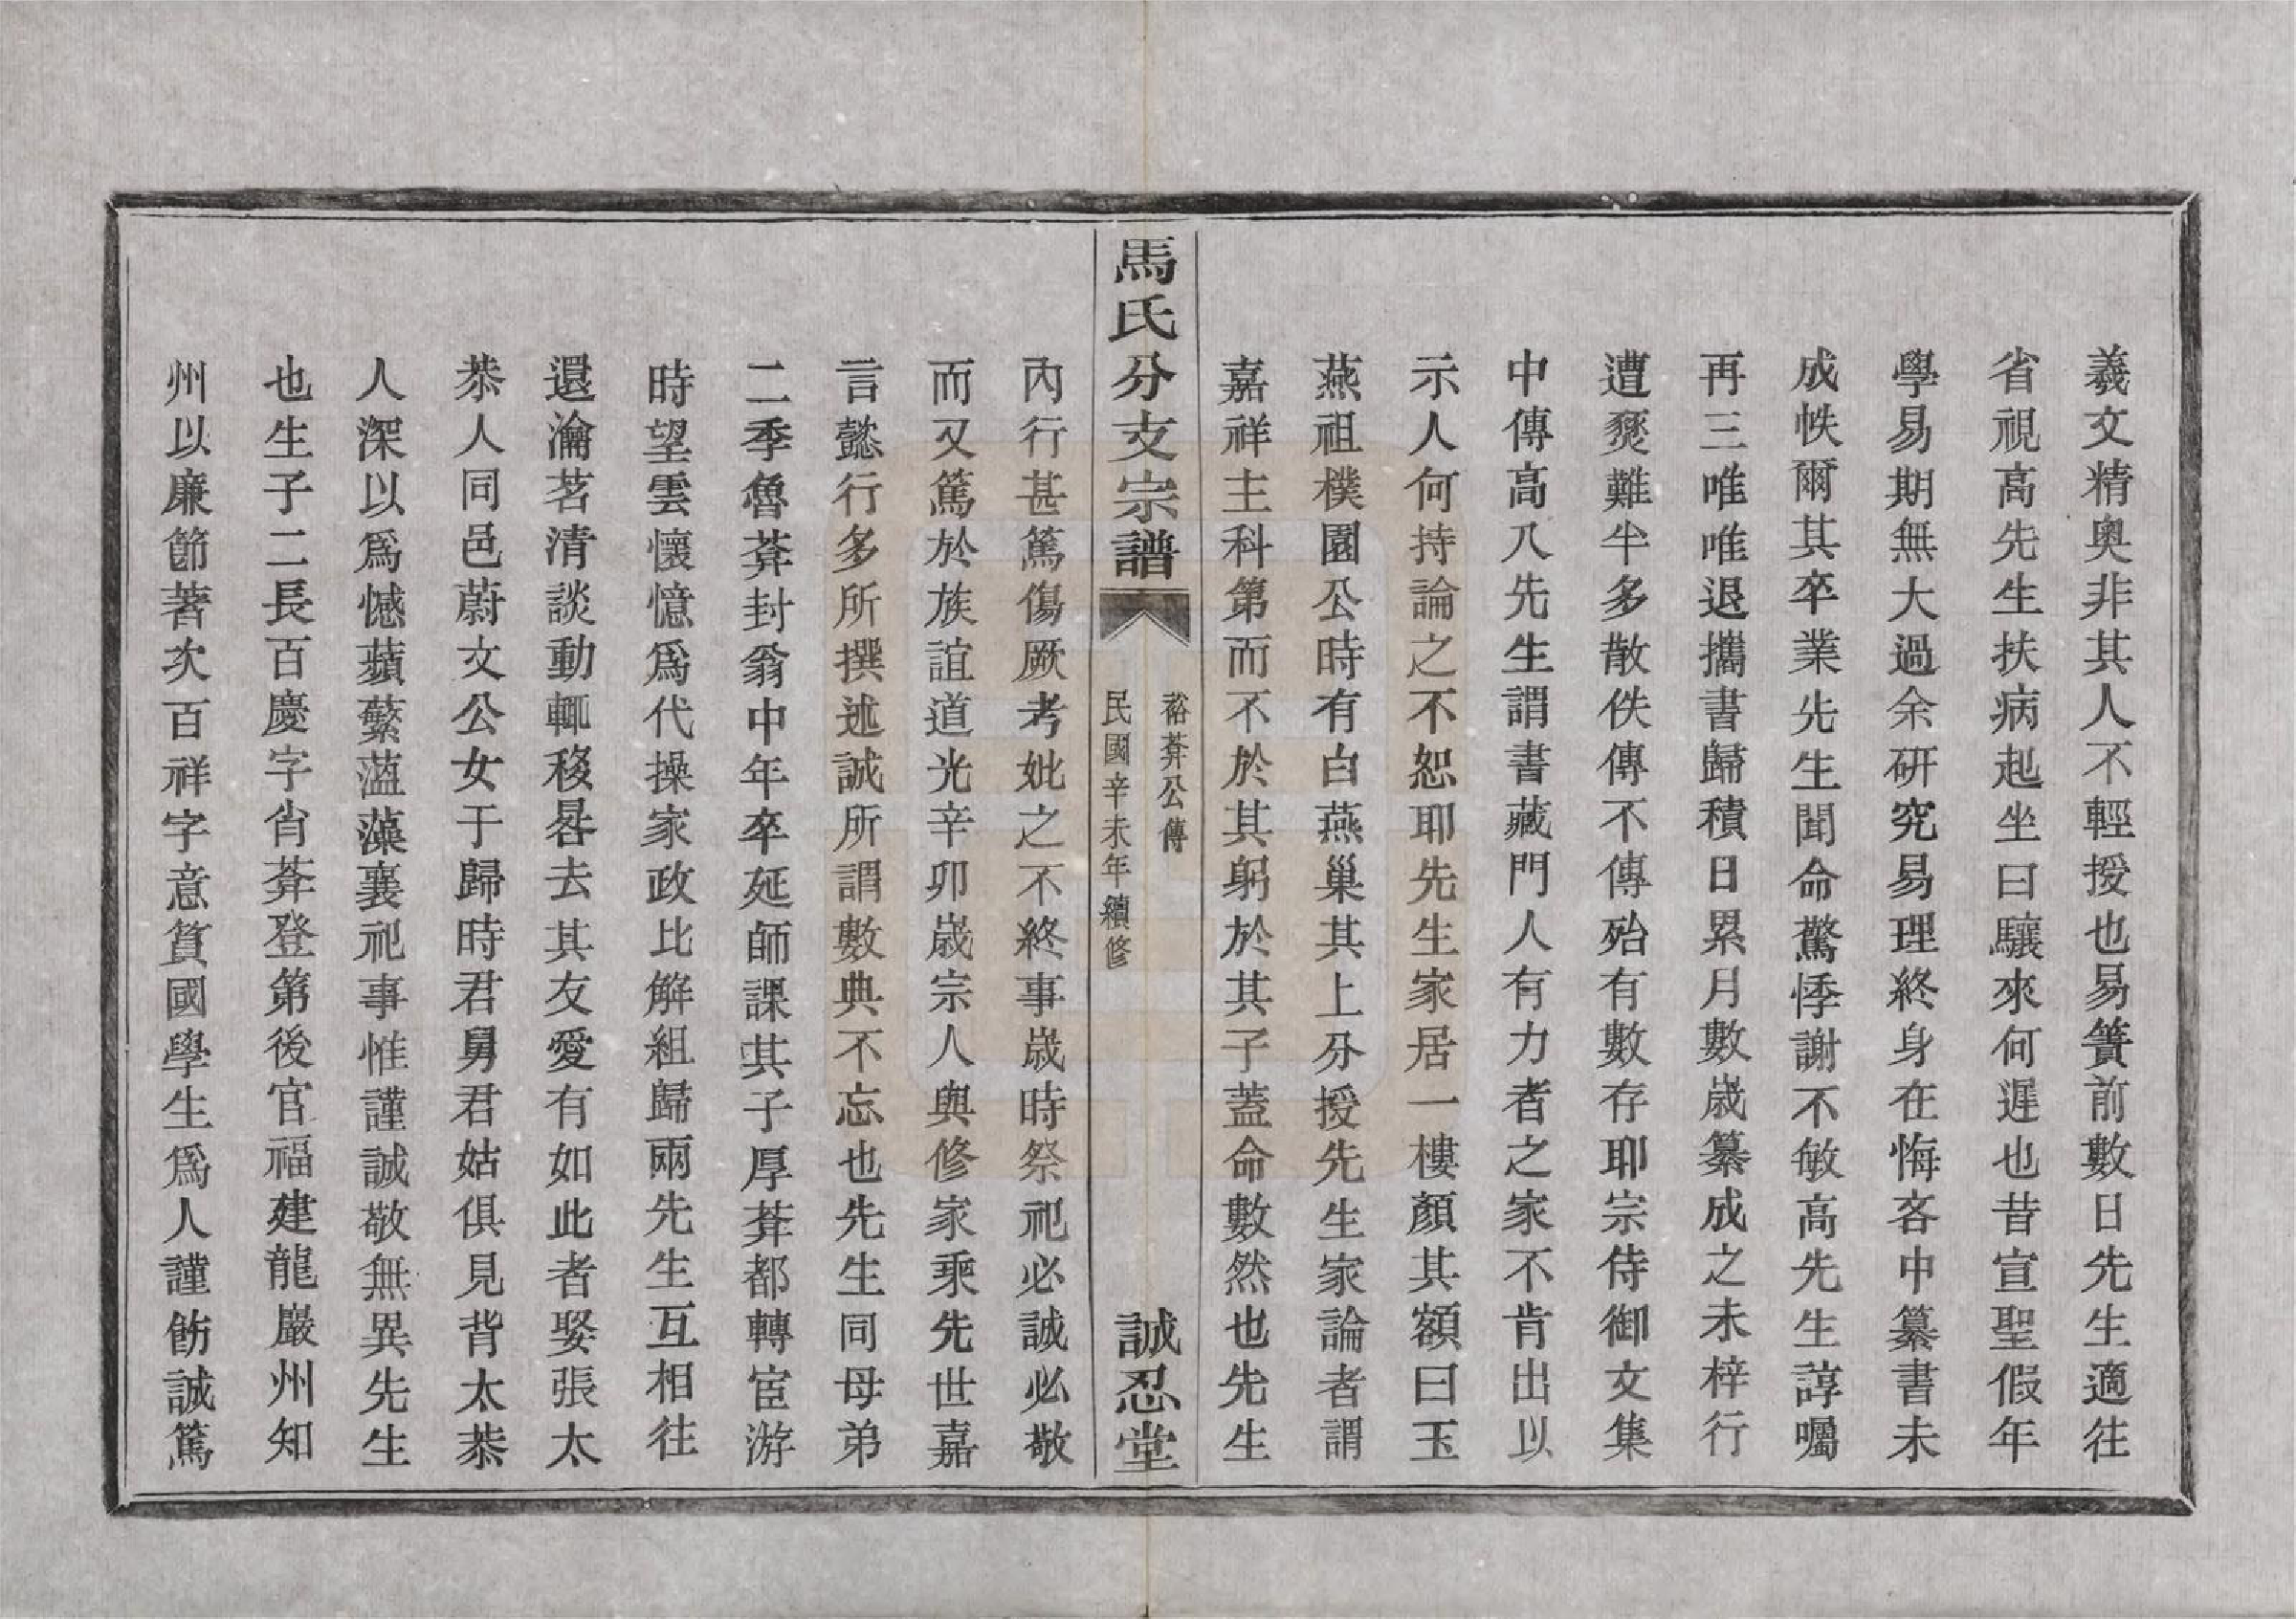 羲文精奧非其人不輕授也易簀前數日先生適往
省視高先生扶病起坐曰驤來何遲也昔宣聖假年
學易期無大過余研究易理終身在悔吝中纂書未
成帙爾其卒業先生聞命驚悸謝不敏高先生諄囑
再三唯唯退攜書歸積日累月數歲纂成之未梓行
遭燹難半多散佚傳不傳殆有數存耶宗侍御文集
中傳高八先生謂書藏門人有力者之家不肯出以
示人何持論之不恕耶先生家居一樓顏其額曰玉
燕祖樸園公時有白燕巢其上分授先生家論者謂
嘉祥主科第而不於其躬於其子蓋命數然也先生
馬氏分支宗譜
裕莽公傳
民國辛未年續修
誠忍堂
內行甚篤傷厥考妣之不終事歲時祭祀必誠必敬
而又篤於族誼道光辛卯歲宗人與修家乘先世嘉
言懿行多所撰述誠所謂數典不忘也先生同母弟
二季魯莽封翁中年卒延師課其子厚莽都轉宦游
時望雲懷憶爲代操家政比解組歸兩先生互相往
還瀹茗清談動輒移晷去其友愛有如此者娶張太
恭人同邑蔚文公女于歸時君舅君姑俱見背太恭
人深以爲憾蘋蘩薀藻襄祀事惟謹誠敬無異先生
也生子二長百慶字省莽登第後官福建龍巖州知
州以廉節著次百祥字意篔國學生爲人謹飭誠篤